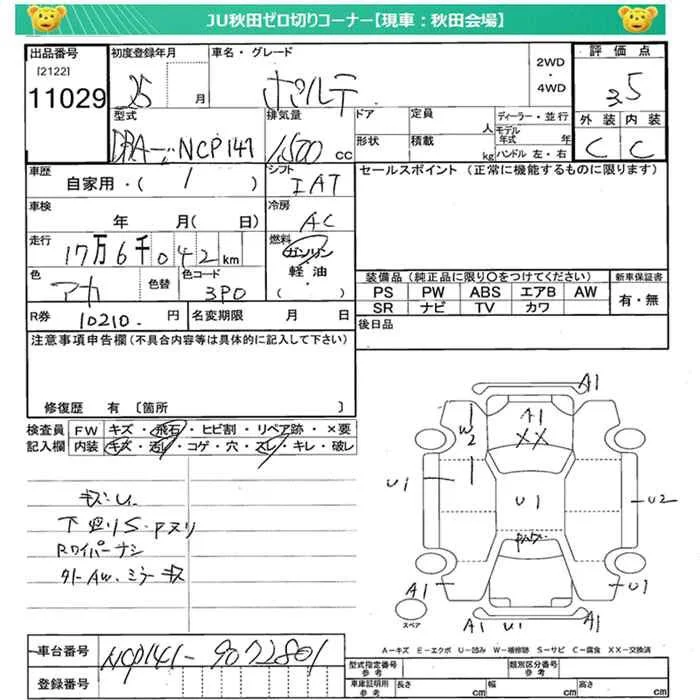 JU秋田ゼロ切りコーナー【現車：秋田会場】
出品番号 初度登録年月 車名・グレード 2WD・4WD 評価点
[2122]
11029 25 月 ポルテ 3.5
型式 排気量 ドア 定員 人 ディーラー・並行 外装 内装
DBA-NCP141 1,500 cc 形状 積載 kg モデル年式 年 ハンドル 左・右 C C
車歴 シフト セールスポイント (正常に機能するものに限ります)
自家用・( / ) IAT
車検 冷房
年 月( 日) AC
走行 燃料
17万6千042km ガソリン・軽油・( )
色 色替 色コード
アカ 3P0
装備品 (純正品に限り○をつけてください) 新車保証書
PS PW ABS エアB AW 有・無
SR ナビ TV カワ
R券 10210. 円 名変期限 月 日
後日品
注意事項申告欄 (不具合内容等は具体的に記入して下さい)
修復歴 有 〔箇所 〕
検査員記入欄 FW キズ・飛石・ヒビ割・リペア跡・×要
内装 キズ・汚レ・コゲ・穴・スレ・キレ・破レ
キズ・U.
Rワイパーナシ
A1
A1
XX
W2
U1
U1
U2
A1
U1
A1 U1 A1
スペア
A-キズ E-エクボ U-凹み W-補修跡 S-サビ C-腐食 XX-交換済
車台番号 NCP141-9072801
登録番号
型式指定番号 参考 類別区分番号 参考
車庫証明用 参考 長さ cm 幅 cm 高さ cm